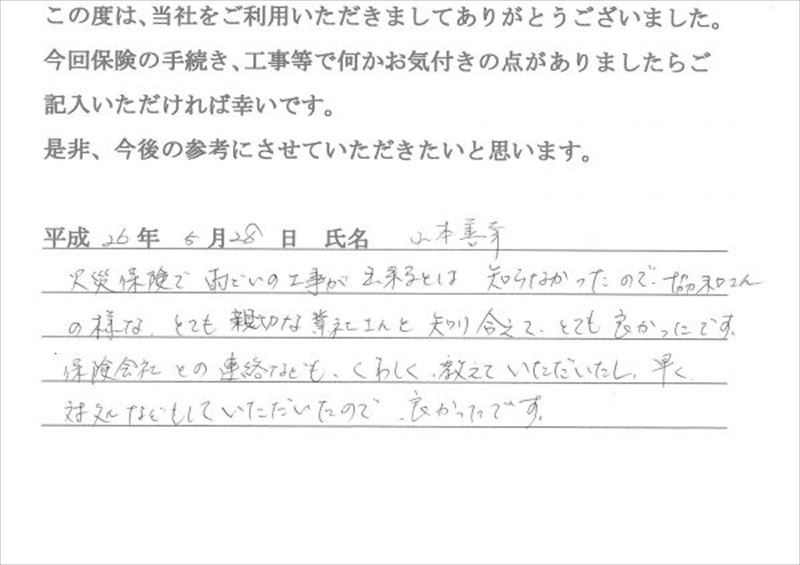 この度は、当社をご利用いただきましてありがとうございました。
今回保険の手続き、工事等で何かお気付きの点がありましたらご
記入いただければ幸いです。
是非、今後の参考にさせていただきたいと思います。
平成 26 年 5 月 28 日 氏名 山本善幸
火災保険で 雨どいの工事が 出来るとは 知らなかったので、協和さん
の様な、とても 親切な 業社さんと 知り合えて、とても 良かったです。
保険会社 との 連絡なども、くわしく 教えて いただいたし、早く
対処などもして いただいたので 良かったです。